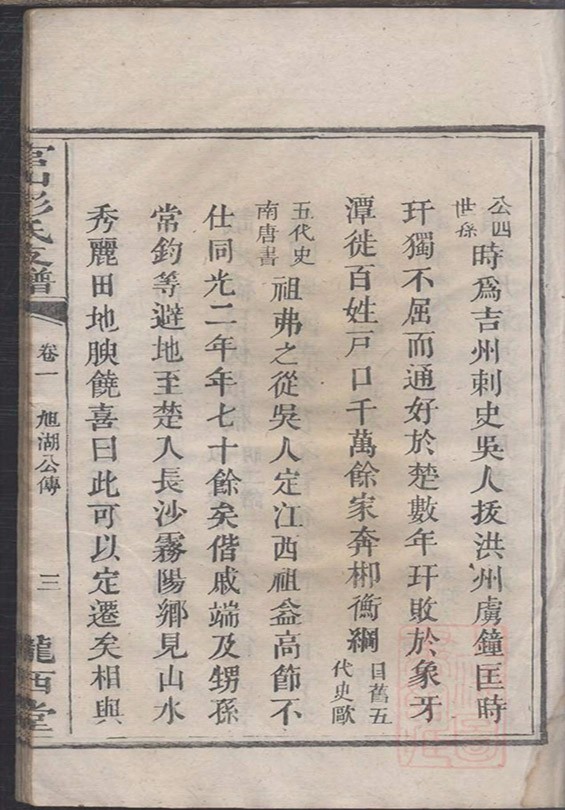 公四世孫時爲吉州刺史吳人拔洪州虜鐘匡時
玕獨不屈而通好於楚數年玕敗於象牙
潭徙百姓戸口千萬餘家奔郴衡綱目舊五代史歐
五代史南唐書祖弗之從吳人定江西祖僉高節不
仕同光二年年七十餘矣偕戚端及甥孫
常鈞等避地至楚入長沙霧陽鄉見山水
秀麗田地腴饒喜曰此可以定遷矣相與
官山彭氏支譜 卷一 旭湖公傳 三 隴西堂